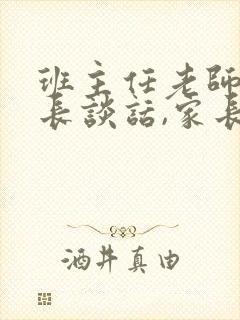 班主任老師
長談話,家長
酒井真由